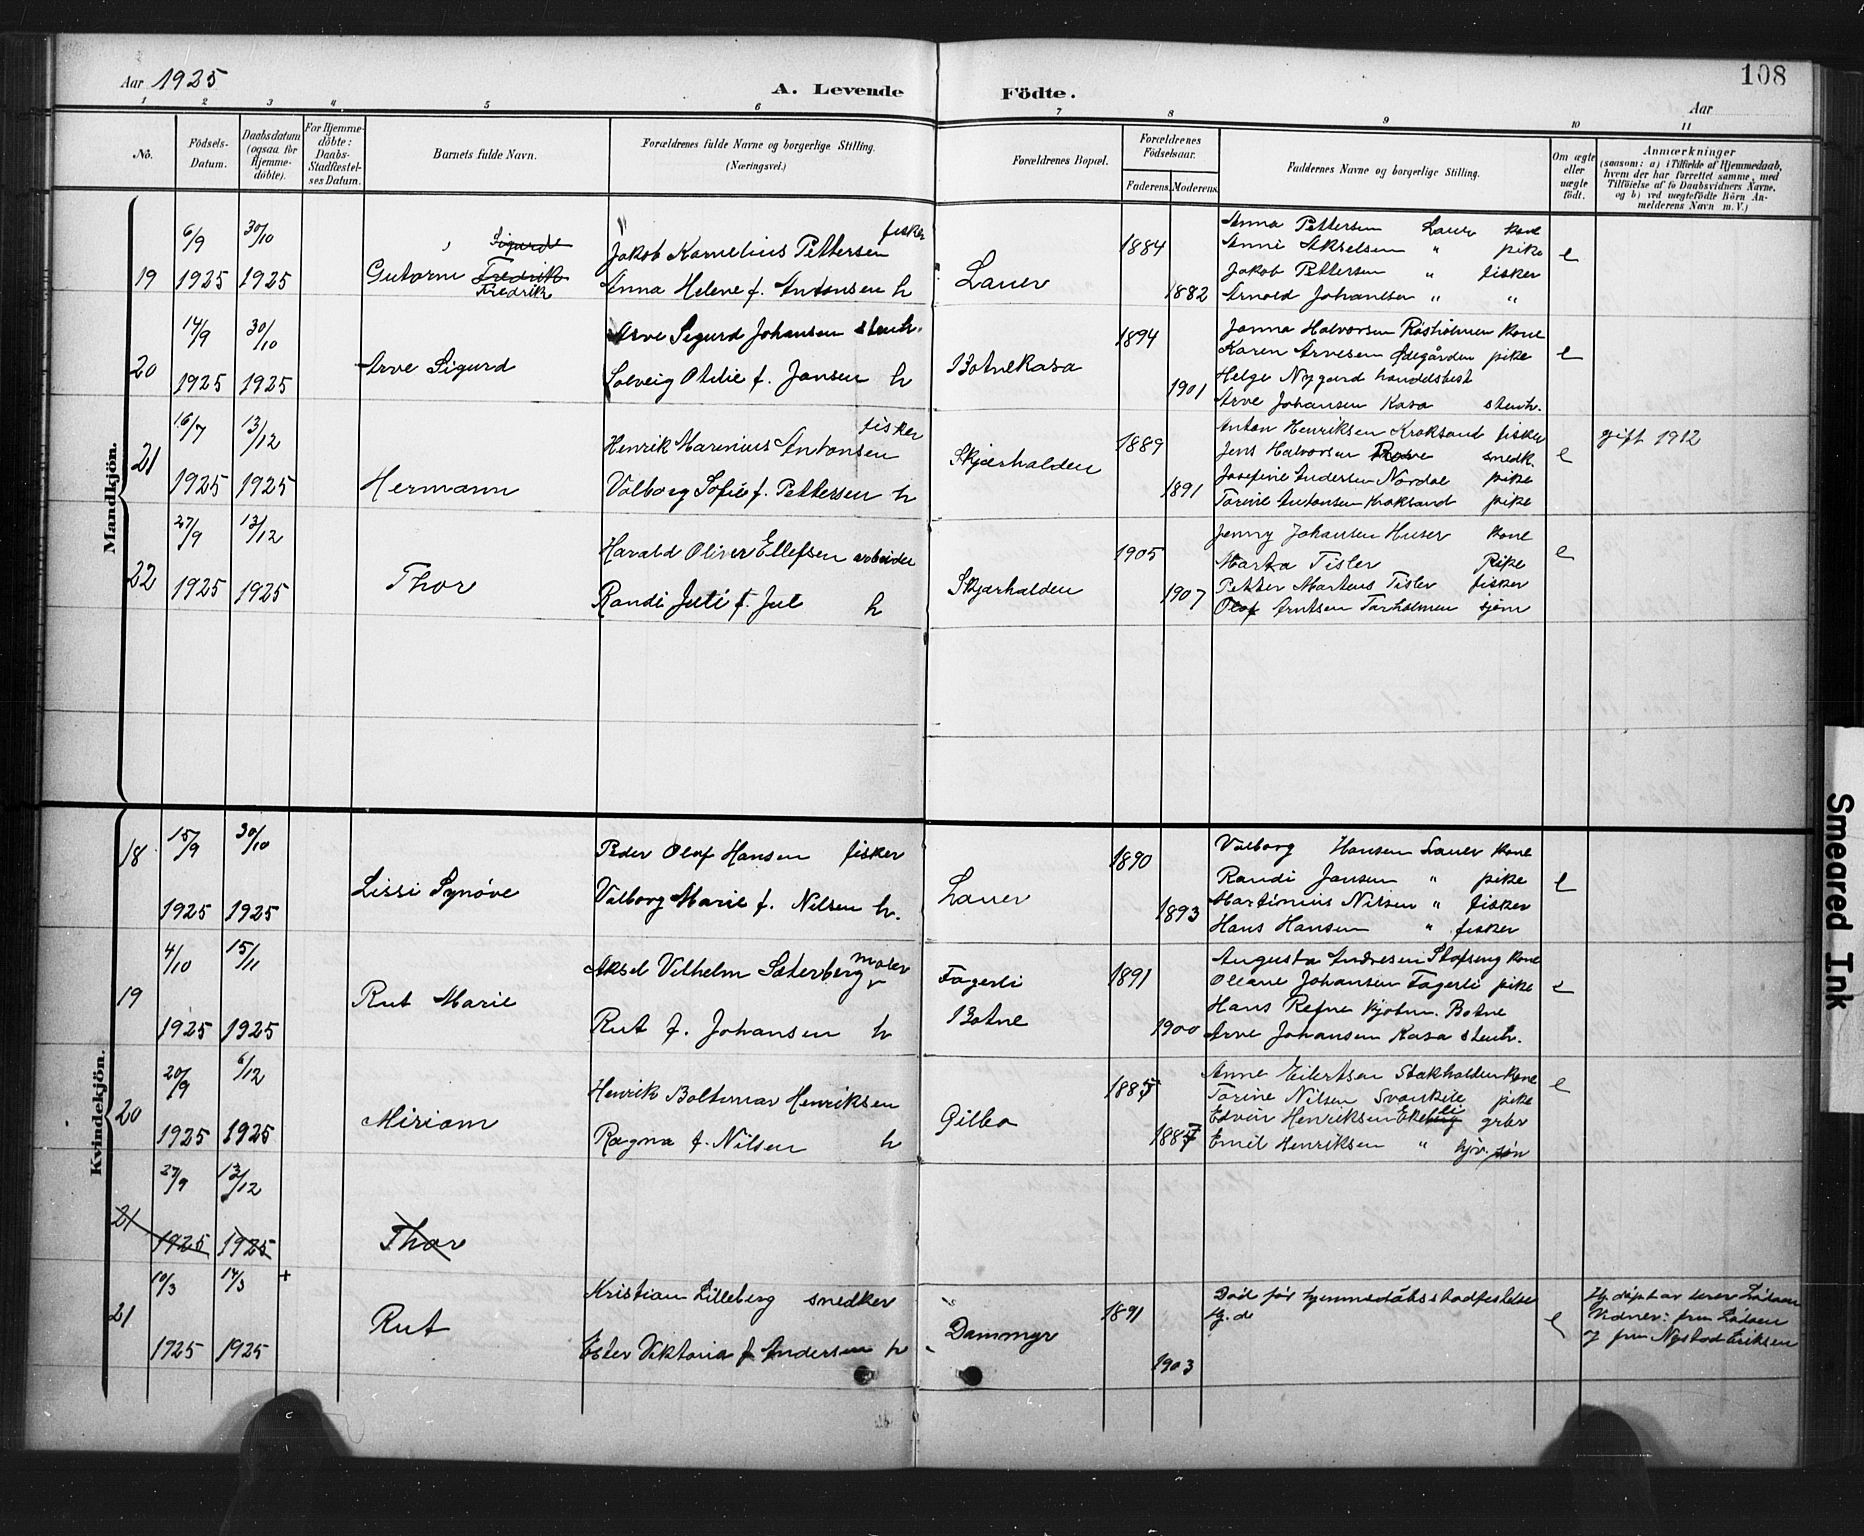 Aar 1925
A. Levende Födte.
Aar
108
1 2 3 4 5 6 7 8 9 10 11
Nò.
Födsels-Datum.
Daabsdatum (ogsaa for Hjemme-döbte).
For Hjemme-döbte: Daabs-Stadfæstel-ses Datum.
Barnets fulde Navn.
Forældrenes fulde Navne og borgerlige Stilling. (Næringsvei.)
Forældrenes Bopæl.
Forældrenes Födselsaar.
Faderens. Moderens.
Faddernes Navne og borgerlige Stilling.
Om ægte eller uægte födt.
Anmærkninger
(saasom: a) i Tilfælde af Hjemmedaab, hvem der har forrettet samme, med Tilföielse af to Daabsvidners Navne, og b) ved uægtefödte Börn Anmelderens Navn m. V.)
Mandkjön.
19 6/9 1925 30/10 1925
Gutorm Sigurds Fredrik Fredrik
Jakob Kornelius Pettersen fisker
Anna Helene f. Antonsen h
Lauer
1884 1882
Anna Pettersen Lauer kone
Anni Akselsen " pike
Jakob Pettersen " fisker
Arnold Johansen " "
e
20 14/9 1925 30/10 1925
Arve Sigurd
Arve Sigurd Johansen stenh.
Solveig Otilie f. Jansen h
Botnekasa
1894 1901
Janna Halvorsen Røsholmen kone
Karen Arvesen Ødegården pike
Helge Nygard handdsbest
Arve Johansen Kasa stenh.
e
21 16/7 1925 13/12 1925
Hermann
Henrik Marenius Antonsen fisker
Valborg Sofie f. Pettersen h
Skjærhalden
1889 1891
Anton Henriksen Kroksand fisker
Jens Halvorsen snedk.
Josefine Andersen Nordal pike
Torine Antonsen Kroksand pike
e
gift 1912
22 27/9 1925 13/12 1925
Thor
Harald Oliver Ellefsen arbeider
Randi Juli f. Jul h
Skjærhalden
1905 1907
Jenny Johansen Huser kone
Marta Tisler Pike
Petter Martens Tisler fisker
Olaf Arntsen Tarholmen sjøm
e
Kvindekjön.
18 15/9 1925 30/10 1925
Lissi Synøve
Peder Olaf Hansen fisker
Valborg Marie f. Nilsen h.
Lauer
1890 1893
Valborg Hansen Lauer kone
Randi Jansen " pike
Martinius Nilsen " fisker
Hans Hansen " fisker
e
19 4/10 1925 15/11 1925
Rut Marie
Aksel Vilhelm Sæterberg maler
Rut f. Johansen h
Fagerli
Botne
1891 1900
Augusta Andresen Stafseng kone
Oleane Johansen Fagerli pike
Hans Refne kjøbm. Botne
Arve Johansen Kasa stenh.
e
20 20/9 1925 6/12 1925
Miriam
Henrik Boltemar Henriksen
Ragna f. Nilsen h
Gilbo
1885 1887
Anne Eilertsen Stokholden kone
Torine Nilsen Svanekile pike
Edvin Henriksen Ekeberg li grbr
Emil Henriksen " hjv. søn
e
21 27/9 1925 13/12 1925
Thor
21 10/3 1925 14/3 1925 +
Rut
Kristian Lilleberg snedker
Ester Viktoria f Andersen h
Dammyr
1891 1903
Død før hjemmedåbsstadfestelse
Hj. d
e
Hj. døpt av lerer Lådoen
Vidner: fru Lådoen
og fru Nystad Eriksen
Smeared Ink